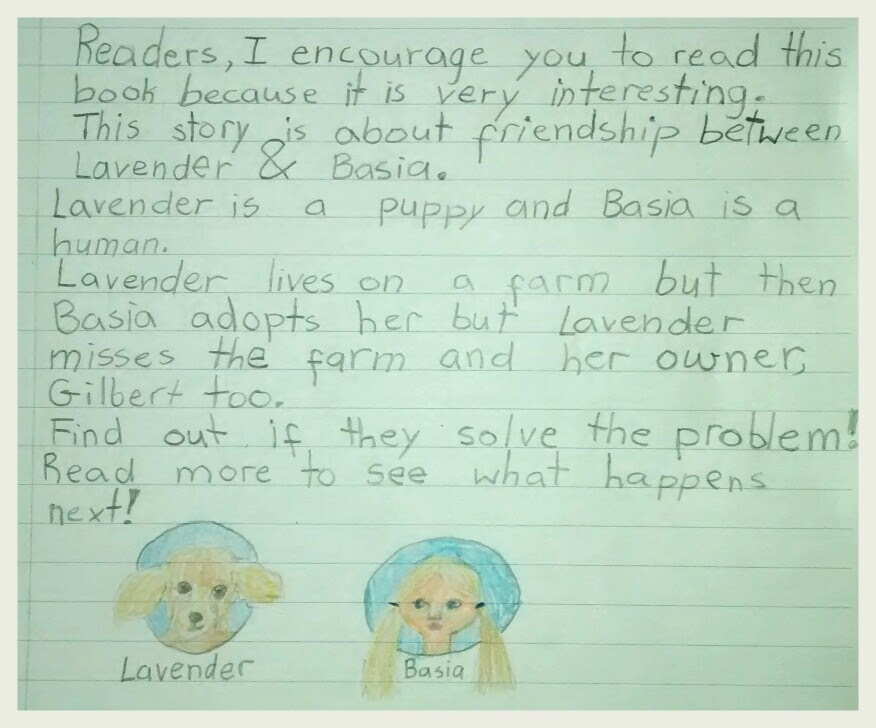 Readers, I encourage you to read this
book because it is very interesting.
This story is about friendship between
Lavender & Basia.
Lavender is a puppy and Basia is a
human.
Lavender lives on a farm but then
Basia adopts her but Lavender
misses the farm and her owner,
Gilbert too.
Find out if they solve the problem!
Read more to see what happens
next!
Lavender
Basia